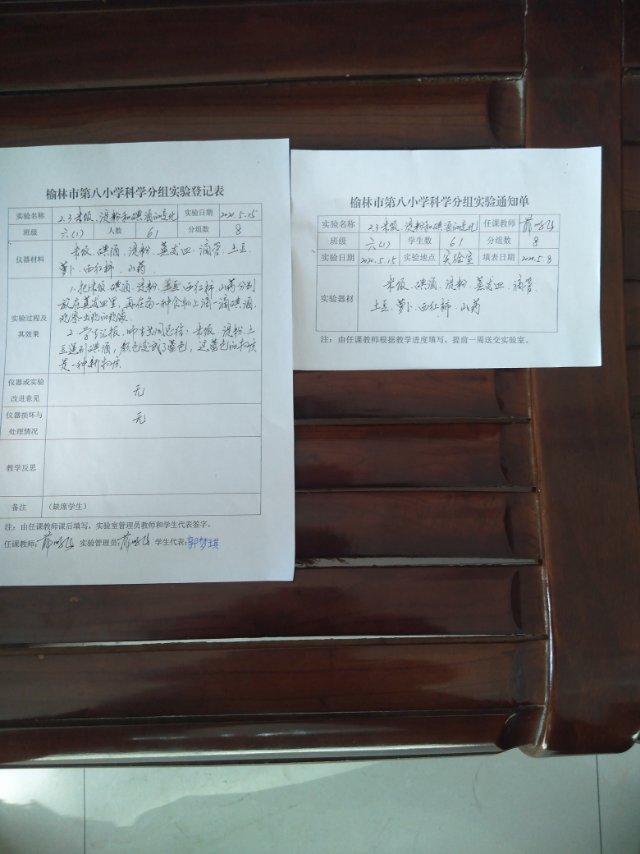 榆林市第八小学科学分组实验登记表
实验名称 2.3米饭、淀粉和碘酒的变化 实验日期 2020.5.15
班级 六(1) 人数 61 分组数 8
仪器材料 米饭、碘酒、淀粉、蒸发皿、滴管、土豆、
萝卜、西红柿、山药
实验过程及其效果 1.把米饭、碘酒、淀粉、西红柿、山药分别
放在蒸发皿里,再在每一种食物上滴一滴碘酒,
观察出现的现象。
2.学生汇报,师生共同总结:米饭、淀粉、土
豆遇到碘酒,颜色变成了蓝色,这蓝色的物质
是一种新物质
仪器或实验改进意见 无
仪器损坏与处理情况 无
教学反思
备注 (缺席学生)
注:由任课教师课后填写,实验室管理员教师和学生代表签字。
任课教师: 实验管理员: 学生代表:郭梦琪
榆林市第八小学科学分组实验通知单
实验名称 2.3米饭、淀粉和碘酒的变化 任课教师
班级 六(1) 学生数 61 分组数 8
实验日期 2020.5.15 实验地点 实验室 填表日期 2020.5.8
实验器材 米饭、碘酒、淀粉、蒸发皿、滴管、
土豆、萝卜、西红柿、山药
注:由任课教师根据教学进度填写,提前一周送交实验室。